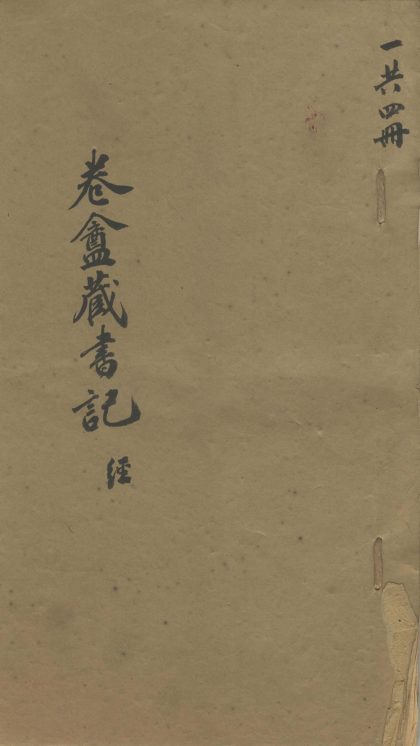 一共四冊
卷盦藏書記
經